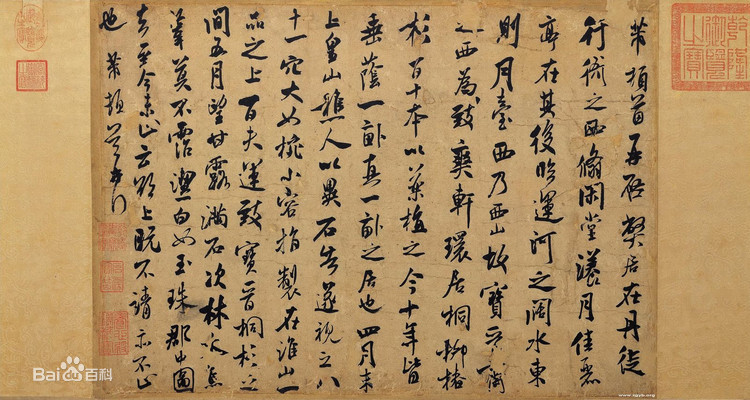 芾頓首再启獘居在丹徒
行衙之西翛閑堂漾月佳麗
亭在其後臨運河之闊水東
則月臺西乃西山故寶晉齋
之西為致爽軒環居桐柳椿
杉百十本以藥植之今十年皆
垂蔭一畝真一畝之居也四月末
上皇山樵人以異石告遂視之八
十一穴大如椀小容指製在淮山一
品之上百夫運致寶晉桐杉之
間五月望甘露滿石次林木焉
莫不霑潔白如玉珠郡中圖
去至今未止云欲上既不請亦不止
也芾頓首再拜
乾隆御覽之寶
Bai百科